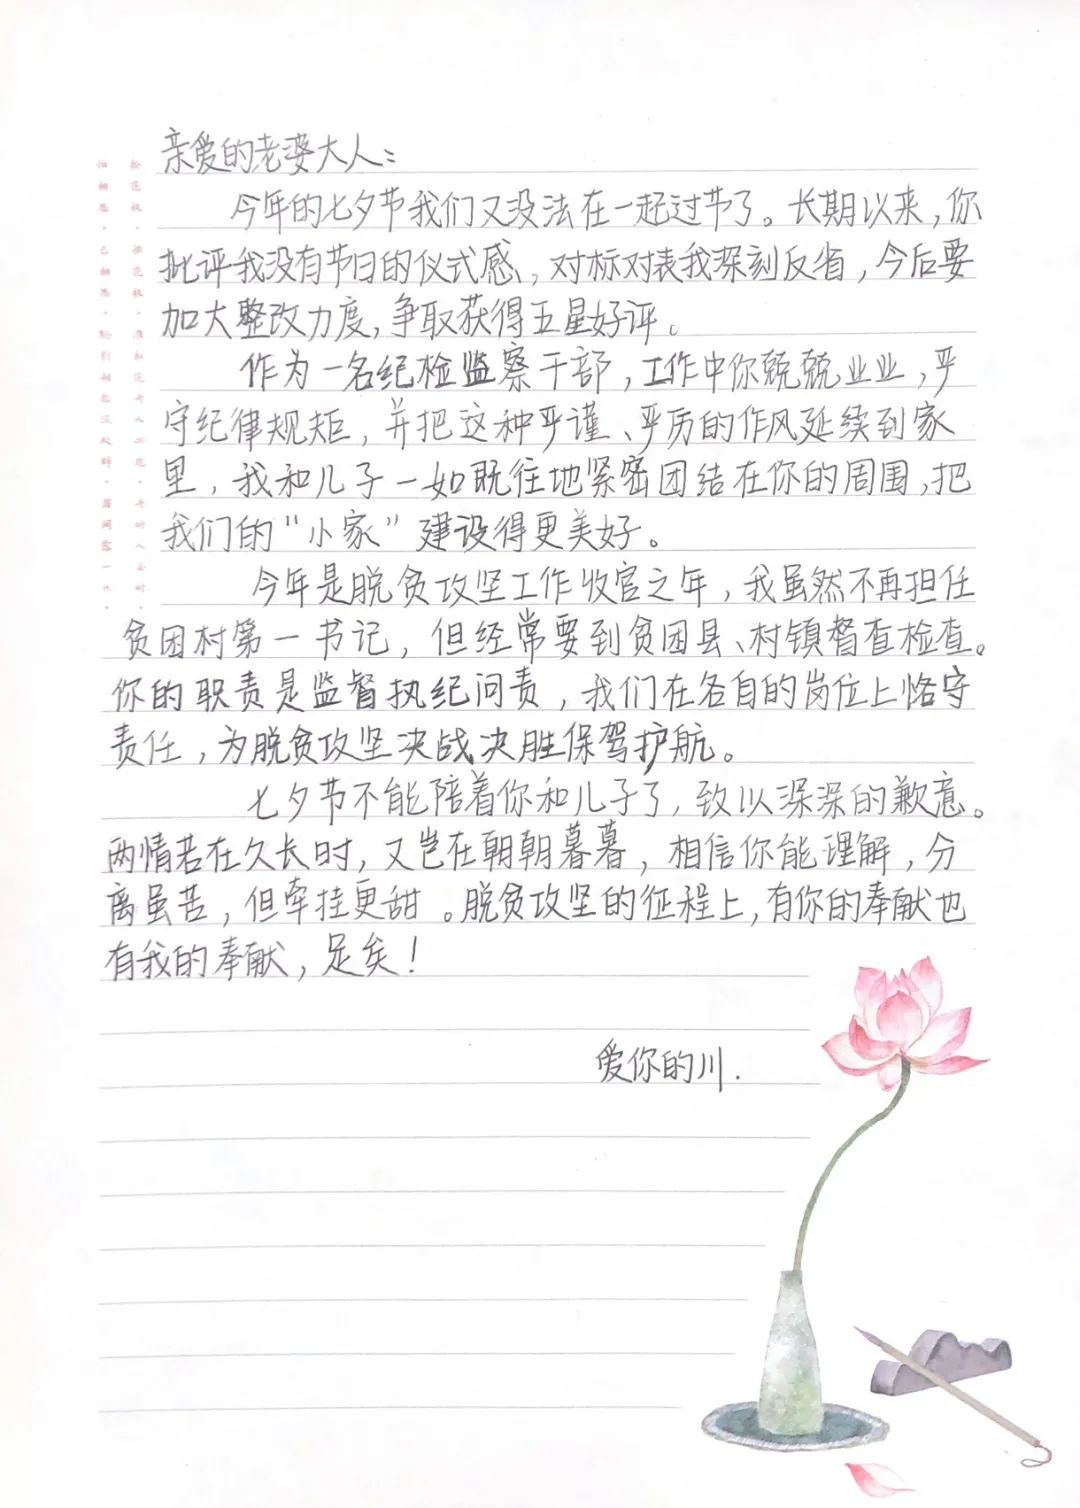 亲爱的老婆大人:
今年的七夕节我们又没法在一起过节了。长期以来,你
批评我没有节日的仪式感、对标对表我深刻反省,今后要
加大整改力度,争取获得五星好评。
作为一名纪检监察干部,工作中你兢兢业业,严
守纪律规矩,并把这种严谨、严厉的作风延续到家
里,我和儿子一如既往地紧密团结在你的周围,把
我们的“小家”建设得更美好。
今年是脱贫攻坚工作收官之年,我虽然不再担任
贫困村第一书记,但经常要到贫困县、村镇督查检查。
你的职责是监督执纪问责,我们在各自的岗位上恪守
责任,为脱贫攻坚决战决胜保驾护航。
七夕节不能陪着你和儿子了,致以深深的歉意。
两情若在久长时,又岂在朝朝暮暮,相信你能理解,分
离虽苦,但牵挂更甜。脱贫攻坚的征程上,有你的奉献也
有我的奉献,足矣!
爱你的川.